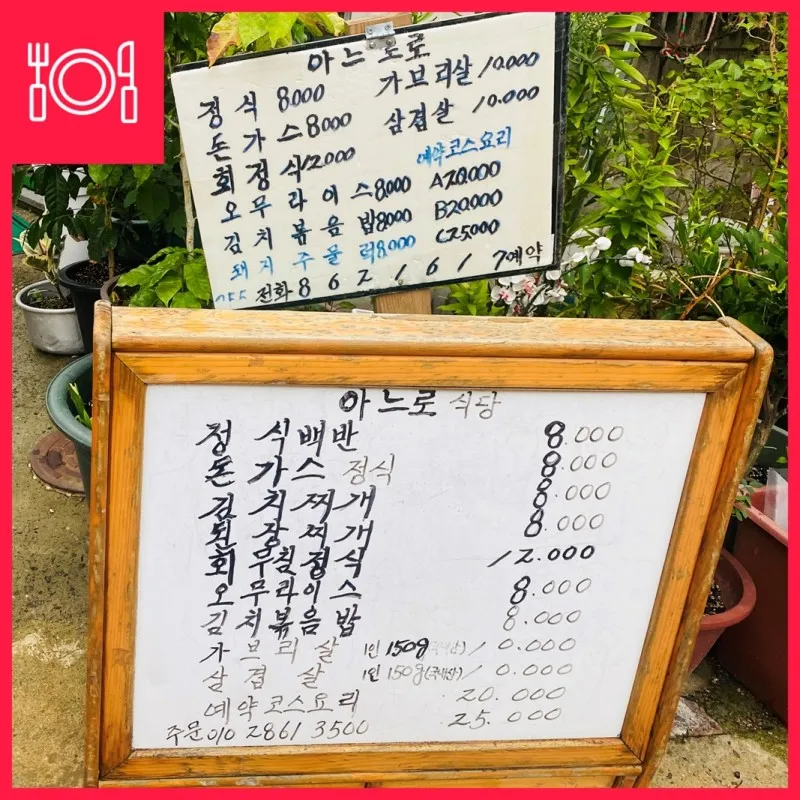 아느로로
정식 8000 가브리살 10.000
돈가스 8000 삼겹살 10.000
회정식 12000 예약코스요리
오무라이스 8,000 A20.000
김치볶음밥 8000 B20000
돼지주물럭 8.000 C25000
055 전화 8 6 2 1 6 1 7예약
아느로 식당
정식백반 8.000
돈가스 정식 8.000
김치찌개 8.000
된장찌개 8.000
회 정식 12.000
오무라이스 8.000
김치볶음밥 8.000
가브리살 1인 150g(국내산) 10.000
삼겹살 1인 150g(국내산) 10.000
예약코스요리 20.000
주문 010 2861 3500 25.000